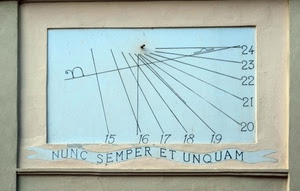 24
23
22
21
20
15 16 17 18 19
NUNC SEMPER ET UNQUAM